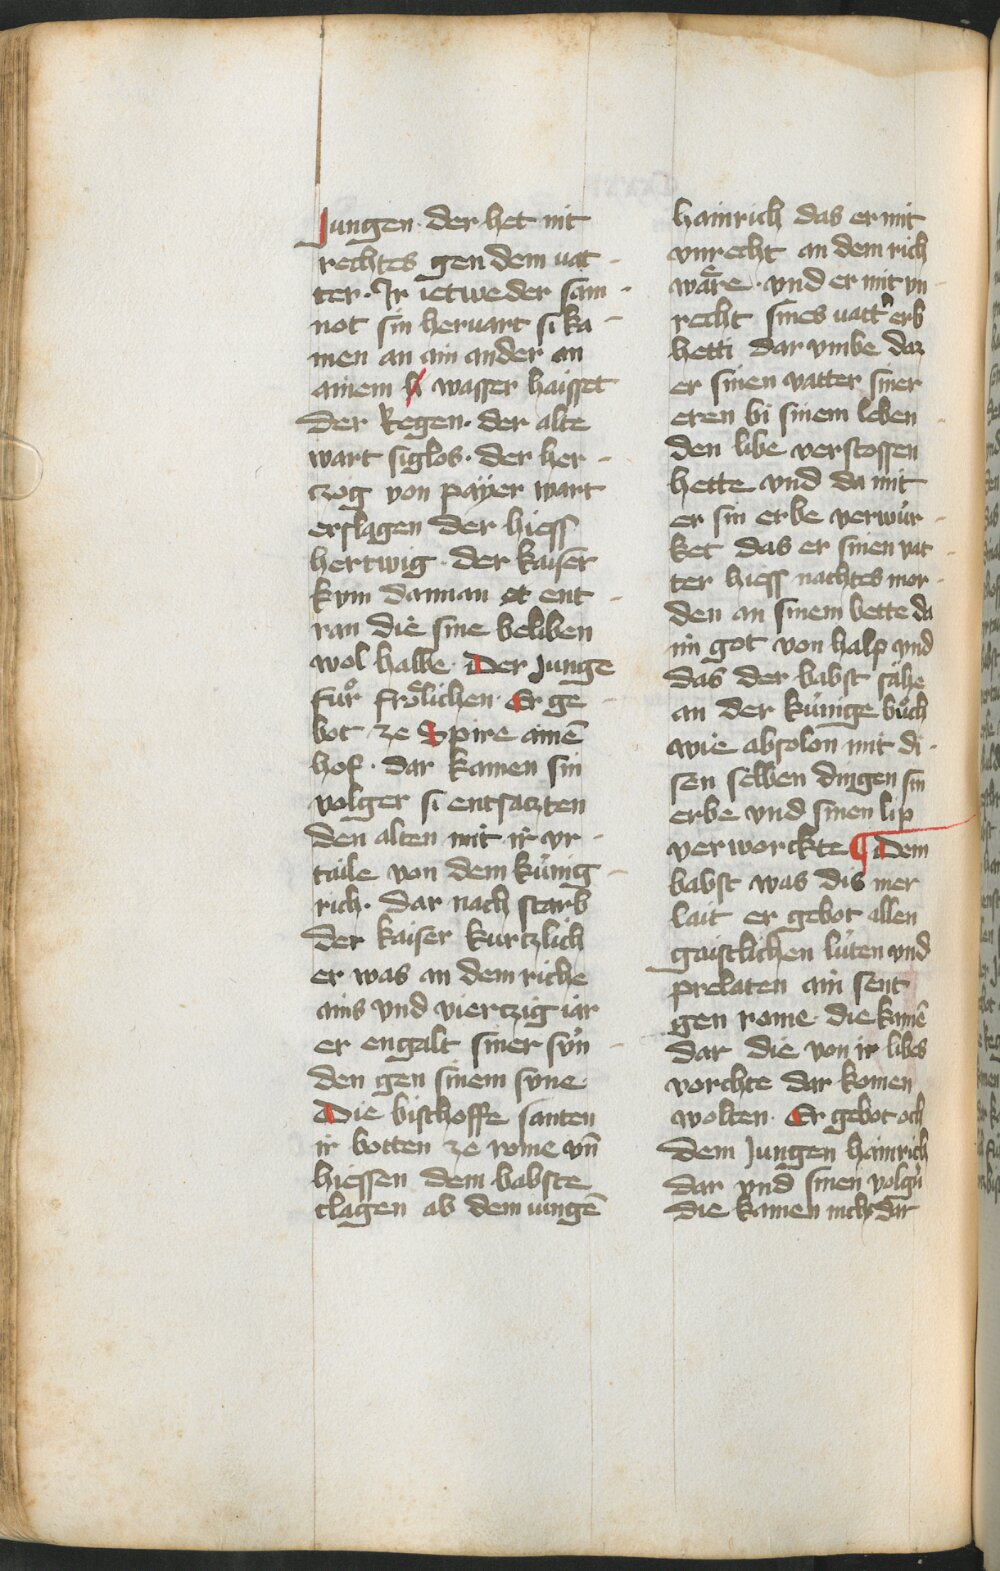 Jungen · der het nit
rechtes gen dem uat -
ter · Jr ietweder sam -
not sin heruart si ka -
men an ain ander an
ainem wasser haisset
der Regen · der alte
wart siglos · der her -
czog von paÿer wart
erslagen der hiess
hertwig · der kaiser
kvm dannan ent -
ran die sine beliben
wol halbe · Der Junge
fuͦr froͤlichen · Er ge -
bot ze Spire ainē
hof · dar kamen sin
volger si entsaczten
den alten mit ir vr -
taile von dem kúnig -
rich · dar nach starb
der kaiser kurczlich
er was an dem riche
ains vnd vierczig iar
er engalt siner sún -
den gen sinem svne ·
Die bischoffe santen
ir botten ze rome vn̄
hiessen dem babste
clagen ab dem iungē
hainrich das er mit
vnrecht an dem rich
waͤre · vnd er mit vn -
recht sines uatt' erb
hetti dar vmbe daz
er sinen vatter siner
eren bi sinem leben -
den libe verstossen
hette vnd da mit
er sin erbe verwúr -
ket das er sinen vat -
ter hiess nachtes mor -
den an sinem bette da
im got von halp vnd
das der babst sähe
an der kúnige buͦch
wie absolon mit di -
sen selben dingen sin
erbe vnd sinen lip
verworckte ¶ Dem
babst was dis mer
lait er gebot allen
gaistlichen lúten vnd
prelaten ain sent
gen rome · die kamē
dar die von ir libes
vorchte dar komen
wolten · Er gebot och
dem Jungen hainrich
dar vnd sinen volg'n
die kamen nicht dar